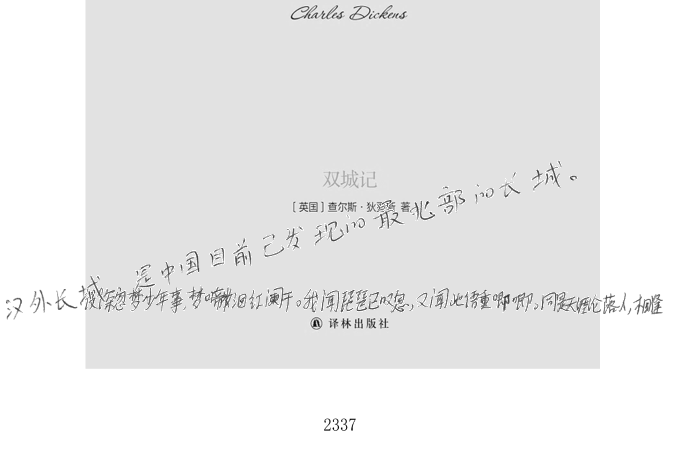 Charles Dickens
双城记
[英国]查尔斯·狄更斯 著
汉外长城 是中国目前已发现的最北部的长城。
夜深忽梦少年事,梦啼妆泪红阑干。我闻琵琶已叹息,又闻此语重唧唧。同是天涯沦落人,相逢
译林出版社
2337